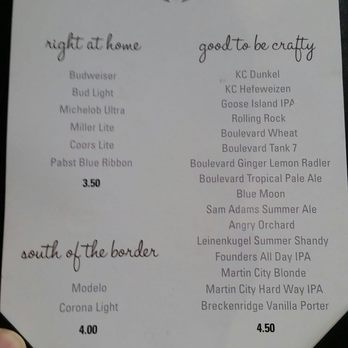 right at home
Budweiser
Bud Light
Michelob Ultra
Miller Lite
Coors Lite
Pabst Blue Ribbon
3.50
south of the border
Modelo
Corona Light
4.00
good to be crafty
KC Dunkel
KC Hefeweizen
Goose Island IPA
Rolling Rock
Boulevard Wheat
Boulevard Tank 7
Boulevard Ginger Lemon Radler
Boulevard Tropical Pale Ale
Blue Moon
Sam Adams Summer Ale
Angry Orchard
Leinenkugel Summer Shandy
Founders All Day IPA
Martin City Blonde
Martin City Hard Way IPA
Breckenridge Vanilla Porter
4.50